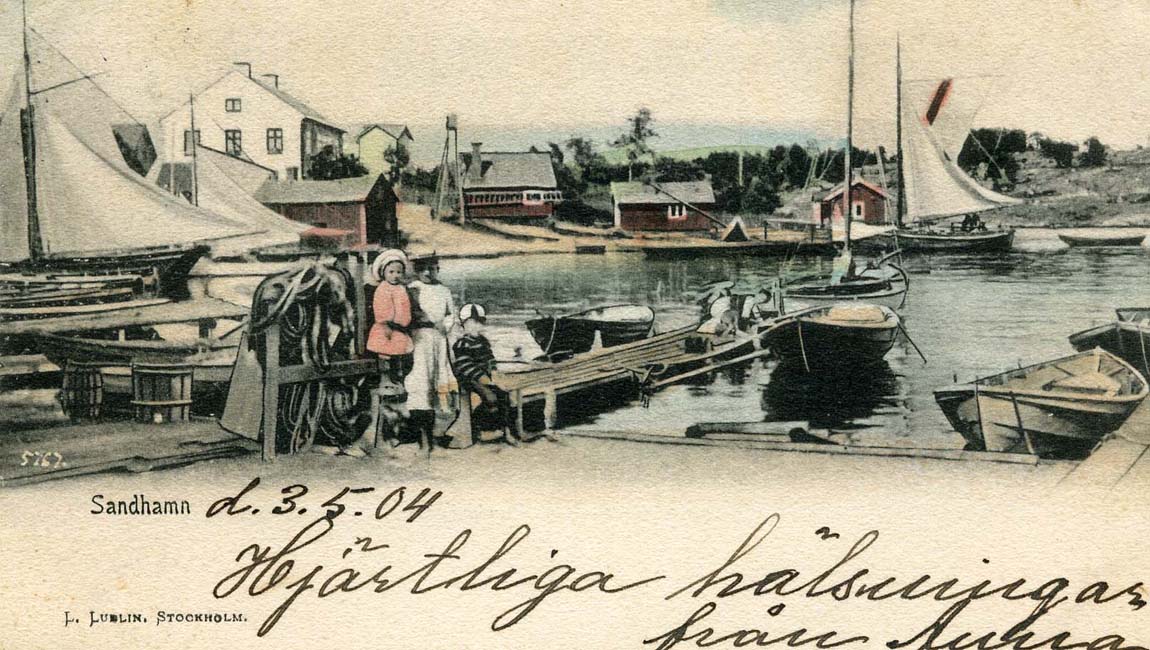 5767.
Sandhamn d. 3.5.04
Hjärtliga hälsningar
L. LUBLIN, STOCKHOLM.
från Anna